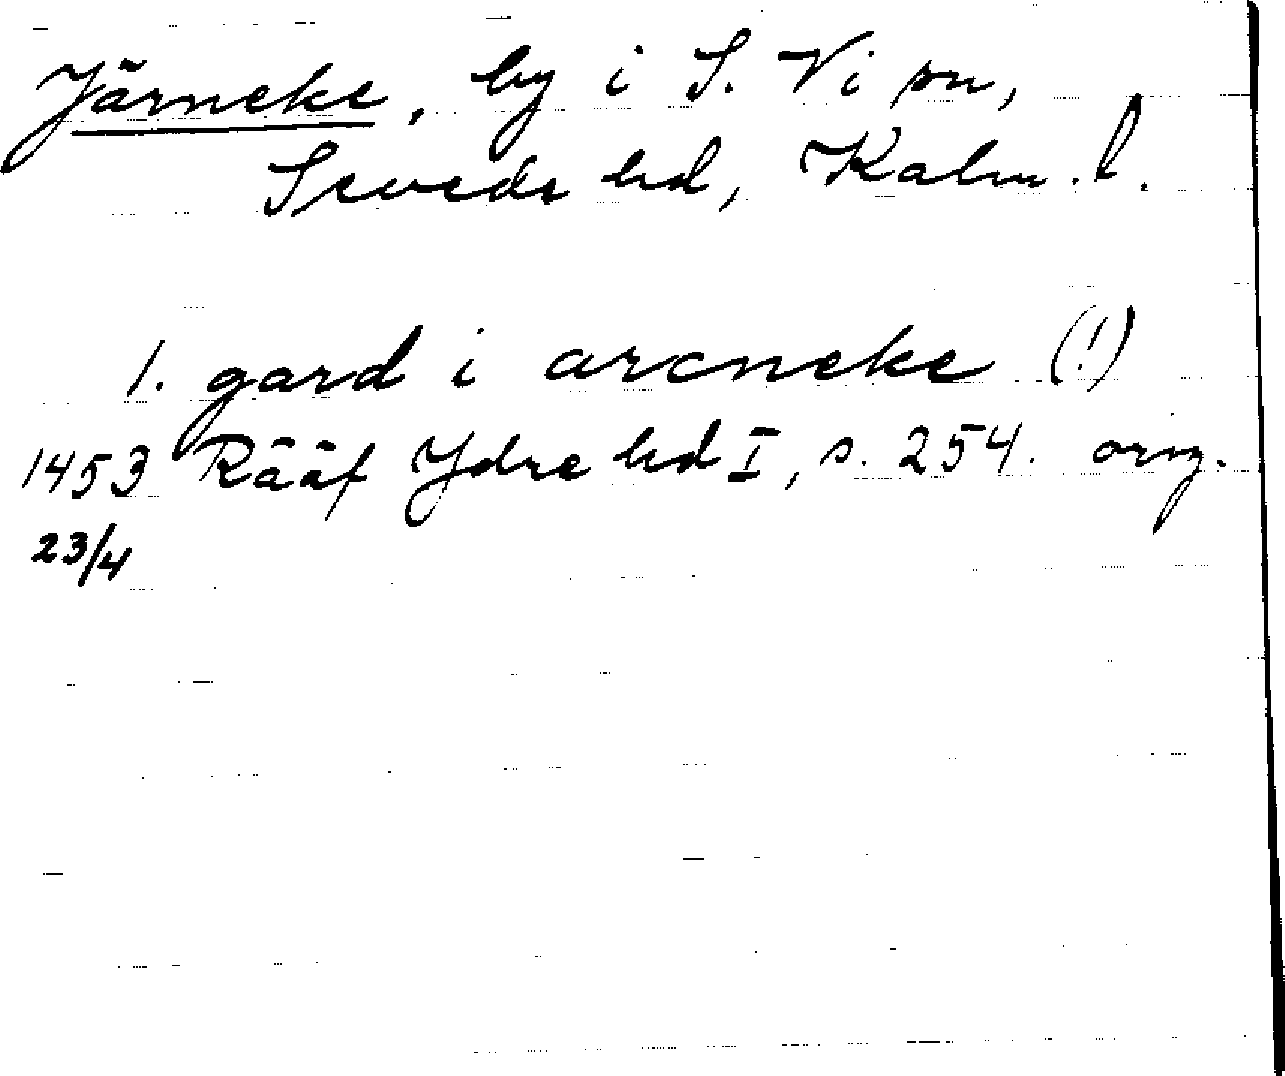 Järneke, by i S. Vi sn,
Sevede hd, Kalm. l.
1. gard i arcneke (!)
1453 Rääf Ydre hd I, s. 254. orig.
23/4